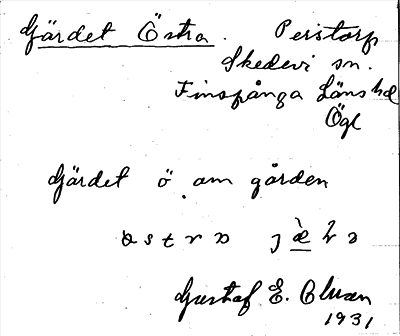 Gärdet Östra. Perstorp
Skedevi sn.
Finspånga Läns hd
Ögl
Gärdet ö. om gården
Gustaf E. Olsson
1931